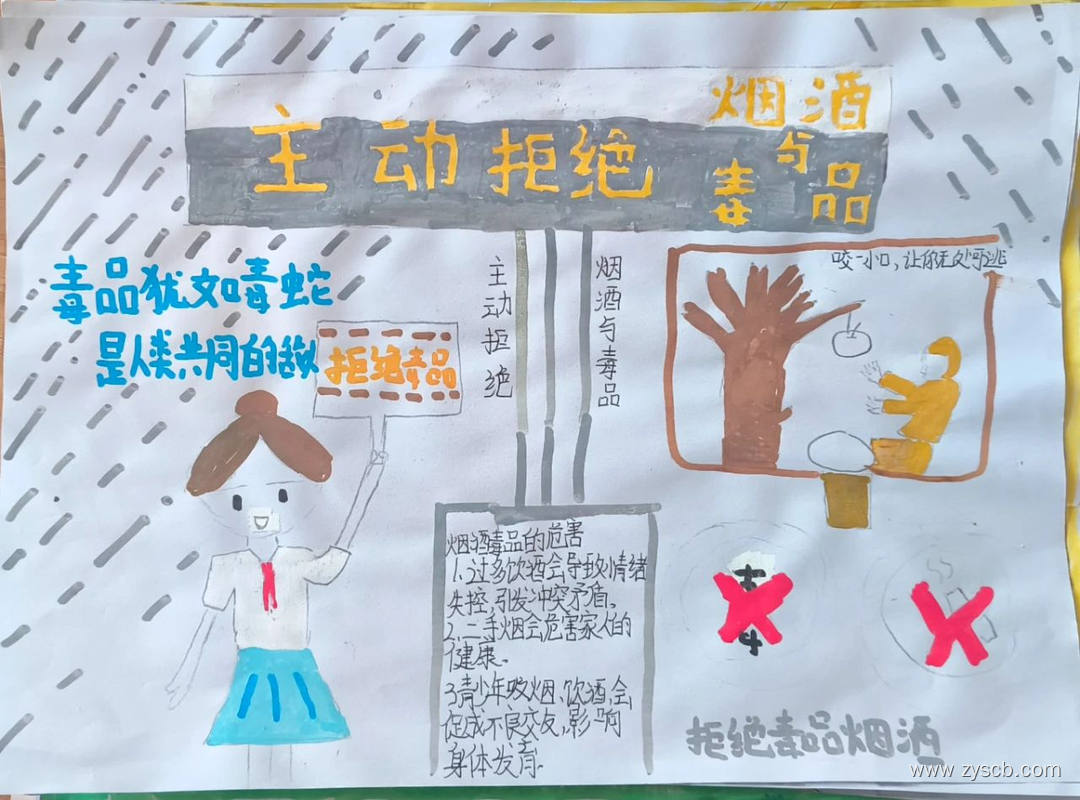 主动拒绝
烟酒
与
毒品
毒品犹如毒蛇
是人类共同的敌
拒绝毒品
主动拒绝
烟酒与毒品
咬一小口,让你无处可逃
烟酒毒品的危害
1.过多饮酒会导致情绪
失控,引发冲突矛盾。
2.二手烟会危害家人的
健康。
3青少年吸烟、饮酒,会
促成不良交友,影响
身体发育.
毒
拒绝毒品烟酒
www.zyscb.com